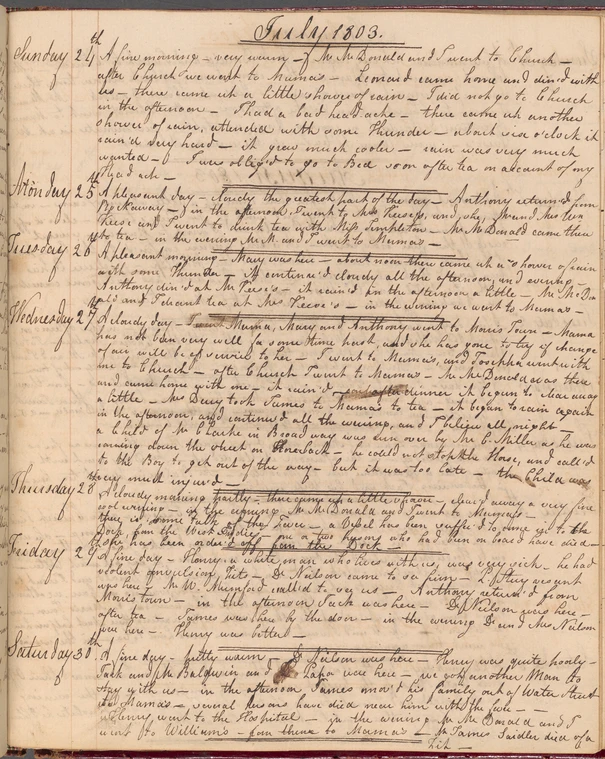 July 1803.
Sunday 24th A fine morning – very warm – Mr McDonald and I went to Church –
after Church we went to Mama's – Leonard came home and din'd with
us – there came up a little shower of rain – I did not go to Church
in the afternoon – I had a bad headache – there came up another
shower of rain, attended with some Thunder – about six o'clock it
rain'd very hard – it grew much cooler – rain was very much
wanted – I was oblig'd to go to Bed soon after tea on account of my
Head ach –
Monday 25th A pleasant day – cloudy the greatest part of the day – Anthony return'd from
Rockaway – in the afternoon I went to Mrs and she, and Mrs Wm
and I went to drink tea with Miss Singleton – Mr McDonald came there
to tea – in the evening Mr M. and I went to Mama's –
Tuesday 26th A pleasant morning – Mary was here – about noon there came up a shower of rain
with some Thunder – it continu'd cloudy all the afternoon, and evening –
Anthony din'd at Mr – it rain'd in the afternoon a little – Mr McDon
ald and I drank tea at Mrs – in the evening we went to Mama's –
Wednesday 27th A cloudy day – Mama, Mary and Anthony went to Morris Town – Mama
has not been very well for some time past, and she has gone to try if change
of air will be of service to her – I went to Mama's, and Josepha went with
me to Church – after Church I went to Mama's – Mr McDonald was there
and came home with me – it rain'd – after dinner it began to clear away
a little – Mrs took James to Mama's to tea – it began to rain again
in the afternoon, and continu'd all the evening, and I believe all night –
a Child of Mr Clarke in Broad way was run over by Mr C. Miller as he was
coming down the street on Horseback – he could not stop the Horse, and call'd
to the Boy to get out of the way – but it was too late – the Child was
very much injur'd –
Thursday 28th A cloudy morning – there came up a little shower – clear'd away a very fine
cool evening – in the evening Mr McDonald and I went to Mama's –
there is some talk of the Fever – a Vessel has been suffer'd to come up to the
Dock from the West Indies – one or two persons who had been on board have died –
has been order'd off from the Dock –
Friday 29th A fine day – Henry, a white man who lives with us, was very sick – he had
violent convulsion Fits – Dr Neilson came to see him –
was here – Mr W. Mumford call'd to see us – Anthony return'd from
Morris town – in the afternoon Jack was here – Dr Neilson was here –
after tea – James was by the door – in the evening Dr and Mrs Neilson
were here – Henry was better –
Saturday 30th A fine day – pretty warm – Dr Neilson was here – Henry was quite poorly –
Jack and Mr Baldwin and Papa were here – we got another Man to
stay with us – in the afternoon James mov'd his family out of Water Street
to Mama's – several persons have died near him with the fever –
Henry went to the Hospital – in the evening Mr McDonald and I
went to William's – from thence to Mama's – Mr James Saidler died of a
Fit –